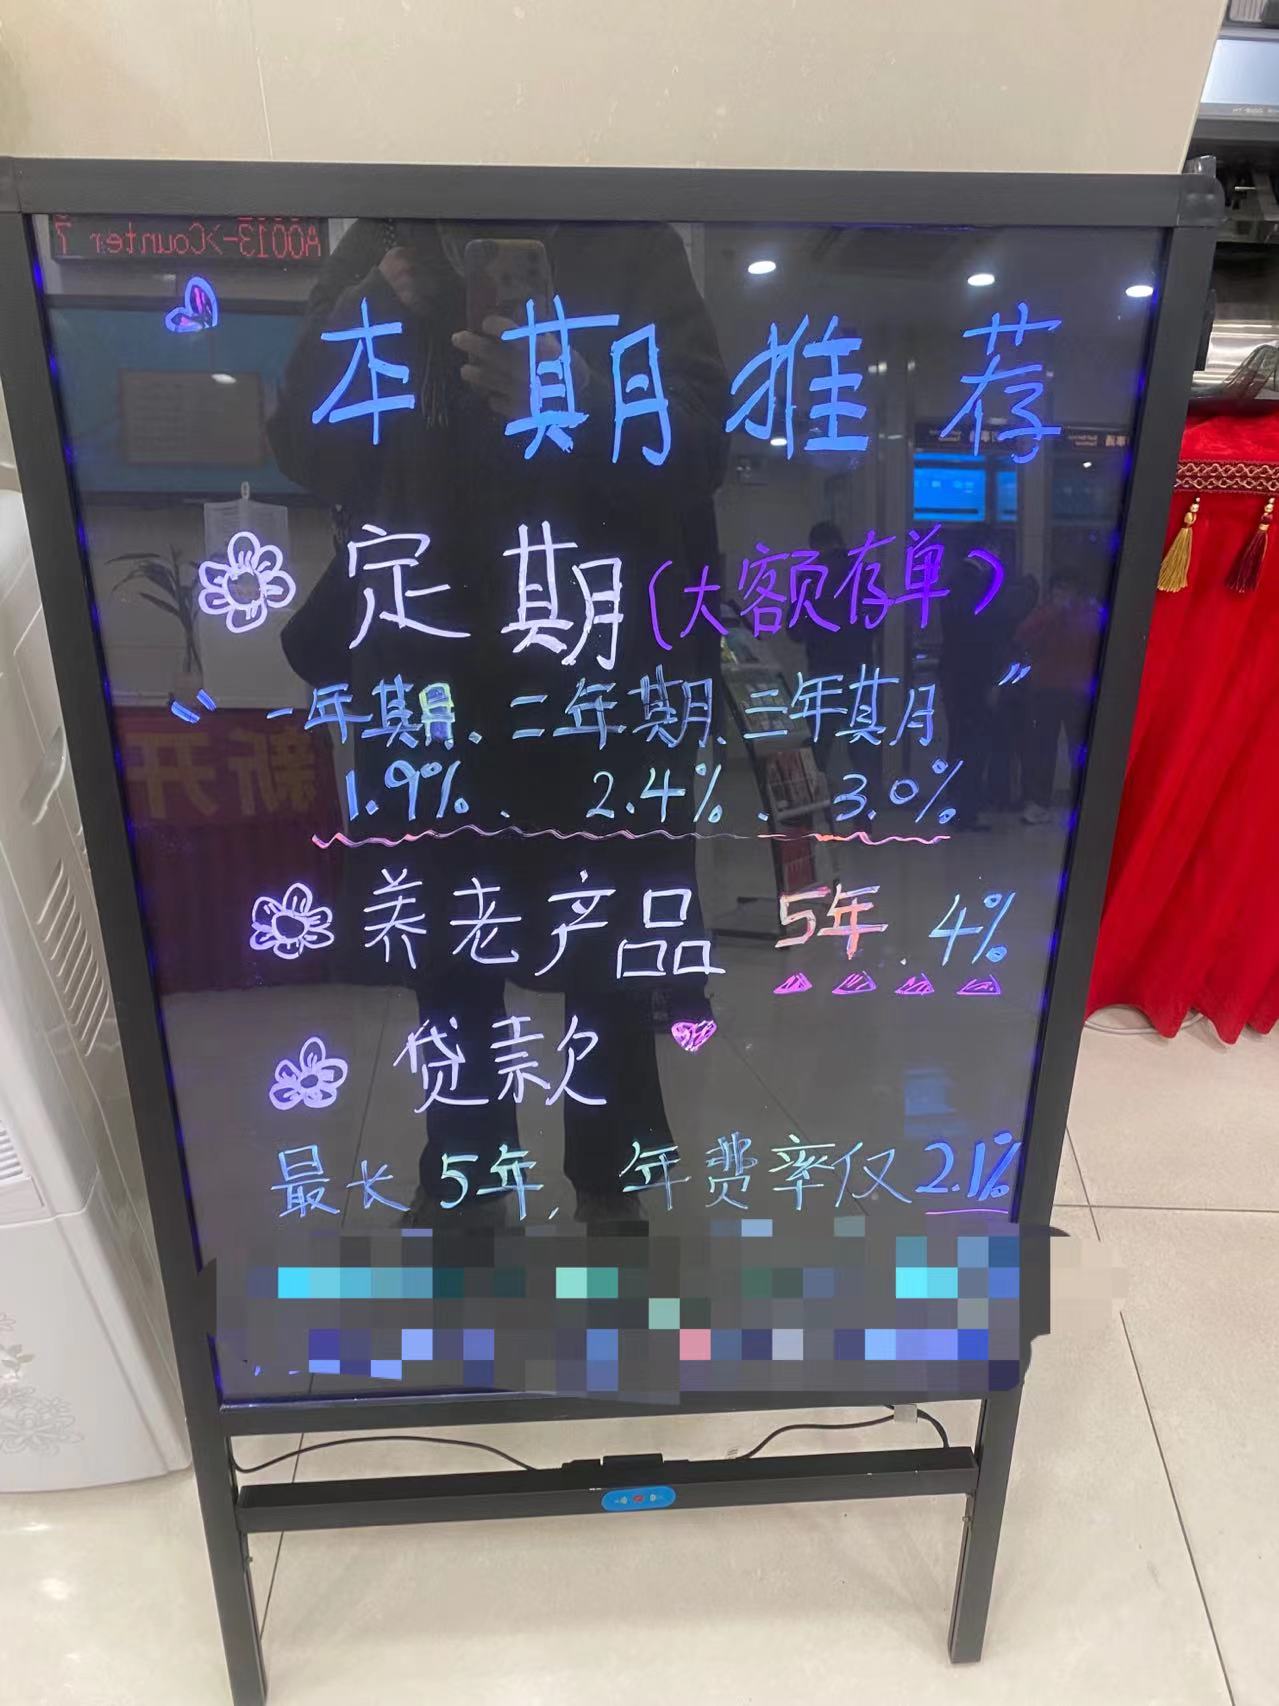 A0013->Counter 7
本期推荐
定期(大额存单)
“一年期、二年期、三年期”
1.9%、2.4%、3.0%
养老产品 5年.4%
贷款
最长5年,年费率仅2.1%
新开